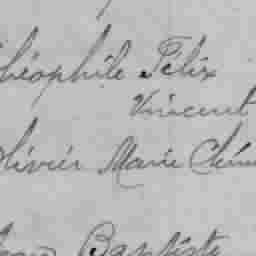 Théophile Félix
Vincent
Olivier Marie
Baptiste